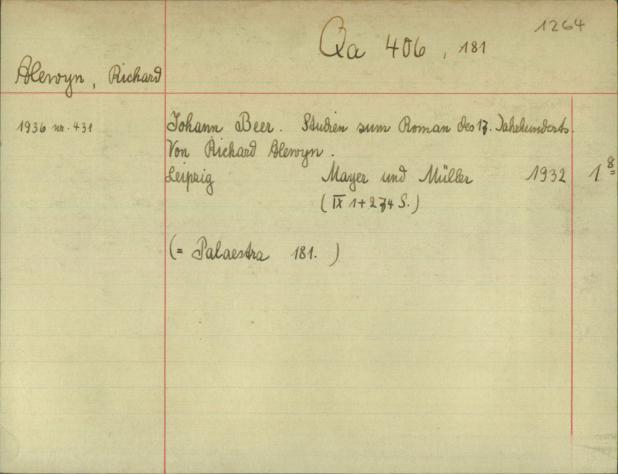 1264
Qa 406, 181
Alewyn, Richard
1936 nr. 431
Johann Beer. Studien zum Roman des 17. Jahrhunderts.
Von Richard Alewyn.
Leipzig Mayer und Müller 1932 1 8°
(IX 1 + 274 S.)
(= Palaestra 181.)